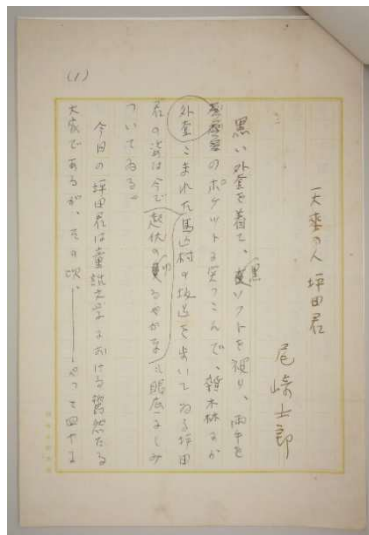 (1)
の人 坪田君
尾崎士郎
黒い外套を着て、黒ソフトを被り、両手を
外套のポケットに突つこんで、雑木林にか
こまれた馬込村の坂道を歩いてゐる坪田
君の姿は今で起伏のるやかな眼底にしみ
ついてゐる。
今日の坪田君は童話文学における然たる
大家であるが、その頃、――やつと四十に